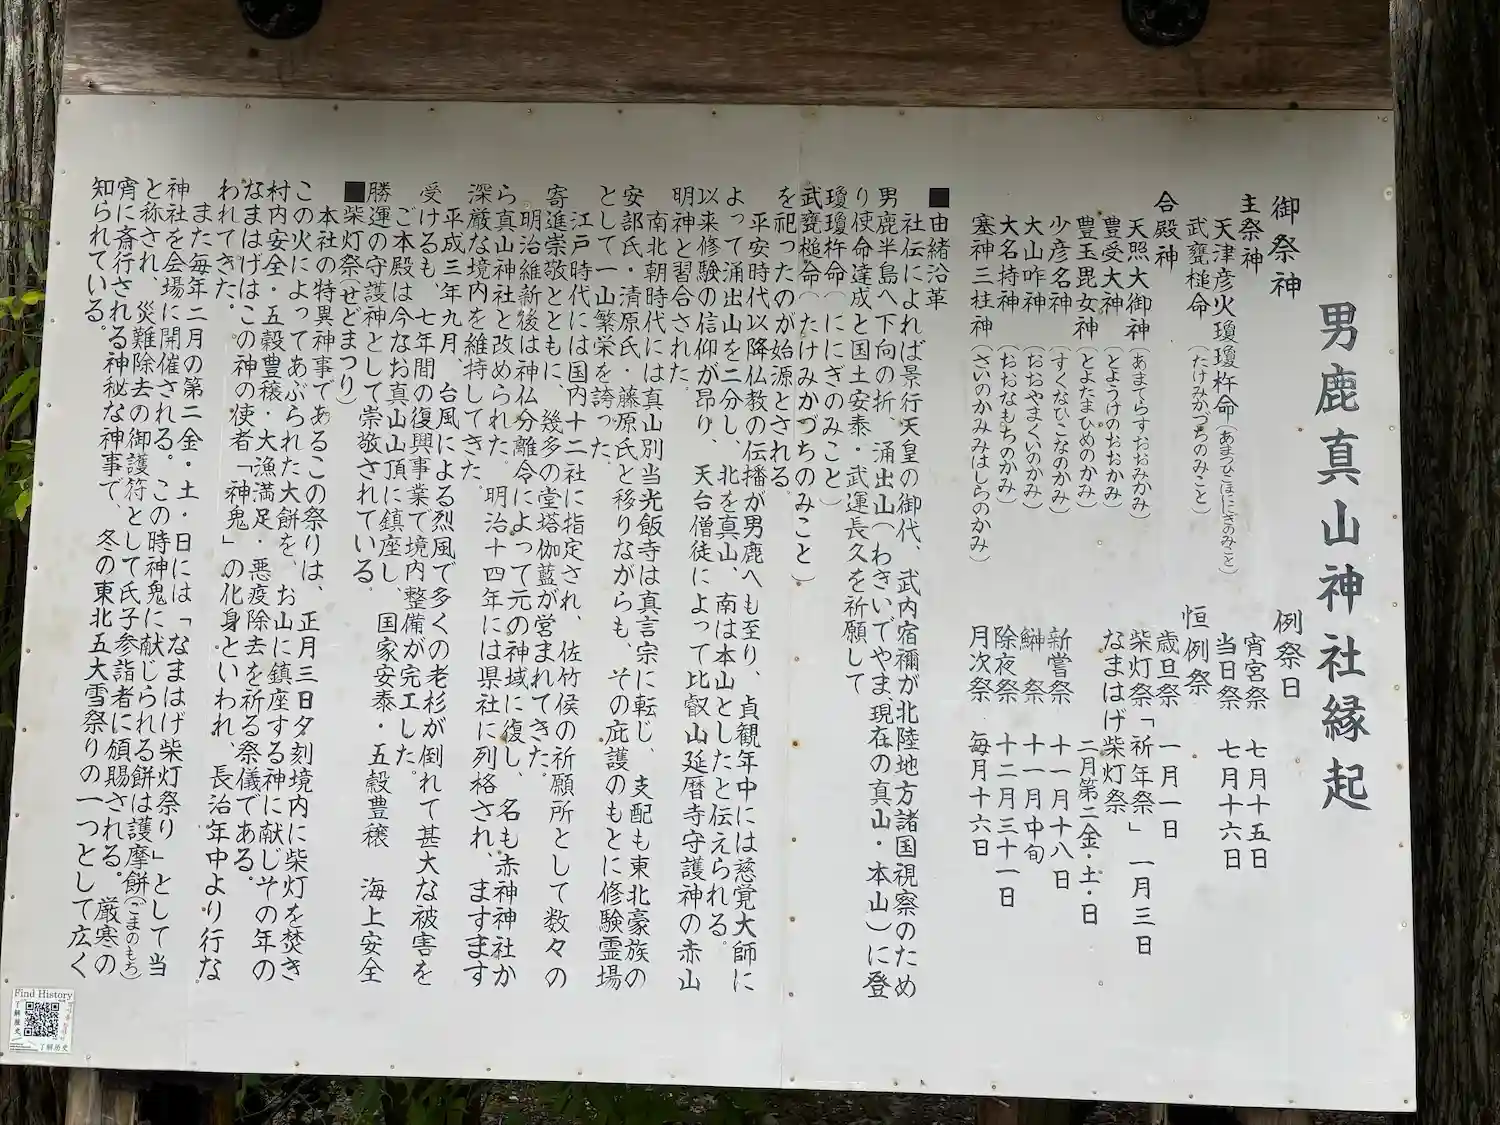 男鹿真山神社縁起
御祭神
主祭神
天津彦火瓊瓊杵命(あまつひこほににぎのみこと)
武甕槌命(たけみかづちのみこと)
合殿神
天照大御神(あまてらすおおみかみ)
豊受大神(とようけのおおかみ)
豊玉毘女神(とよたまひめのかみ)
少彦名神(すくなひこなのかみ)
大山咋神(おおやまくいのかみ)
大名持神(おおなもちのかみ)
塞神三柱神(さいのかみみはしらのかみ)
例祭日
宵宮祭 七月十五日
当日祭 七月十六日
恒例祭
歳旦祭 一月一日
柴灯祭「祈年祭」 一月三日
なまはげ柴灯祭
二月第二金・土・日
新嘗祭 十一月十八日
鰰祭 十一月中旬
除夜祭 十二月三十一日
月次祭 毎月十六日
■由緒沿革
社伝によれば景行天皇の御代、武内宿禰が北陸地方諸国視察のため
男鹿半島へ下向の折、涌出山(わきいでやま、現在の真山・本山)に登
り使命達成と国土安泰・武運長久を祈願して
瓊瓊杵命(ににぎのみこと)
武甕槌命(たけみかづちのみこと)
を祀ったのが始源とされる。
平安時代以降仏教の伝播が男鹿へも至り、貞観年中には慈覚大師に
よって涌出山を二分し、北を真山、南は本山としたと伝えられる。
以来修験の信仰が昂り、天台僧徒によって比叡山延暦寺守護神の赤山
明神と習合された。
南北朝時代には真山別当光飯寺は真言宗に転じ、支配も東北豪族の
安部氏・清原氏・藤原氏と移りながらも、その庇護のもとに修験霊場
として一山繁栄を誇った。
江戸時代には国内十二社に指定され、佐竹侯の祈願所として数々の
寄進崇敬とともに、幾多の堂塔伽藍が営まれてきた。
明治維新後は神仏分離令によって元の神域に復し、名も赤神神社か
ら真山神社と改められた。明治十四年には県社に列格され、ますます
深厳な境内を維持してきた。
平成三年九月、台風による烈風で多くの老杉が倒れて甚大な被害を
受けるも、七年間の復興事業で境内整備が完工した。
ご本殿は今なお真山山頂に鎮座し、国家安泰・五穀豊穣 海上安全
勝運の守護神として崇敬されている。
■柴灯祭(せどまつり)
本社の特異神事であるこの祭りは、正月三日夕刻境内に柴灯を焚き
この火によってあぶられた大餅を、お山に鎮座する神に献じその年の
村内安全・五穀豊穣・大漁満足・悪疫除去を祈る祭儀である。
なまはげはこの神の使者「神鬼」の化身といわれ、長治年中より行な
われてきた。
また毎年二月の第二金・土・日には「なまはげ柴灯祭り」として当
神社を会場に開催される。この時神鬼に献じられる餅は護摩餅(ごまのもち)
と称され、災難除去の御護符として氏子参詣者に頒賜される。厳寒の
宵に斎行される神秘な神事で、冬の東北五大雪祭りの一つとして広く
知られている。
Find History
了解歴史
了解历史